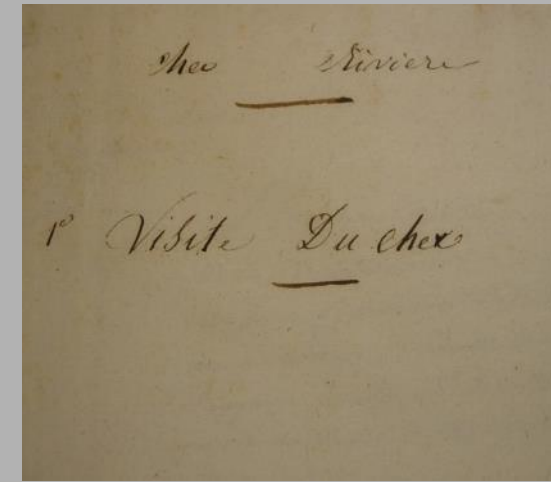 Rivière
1º Visite Du chez